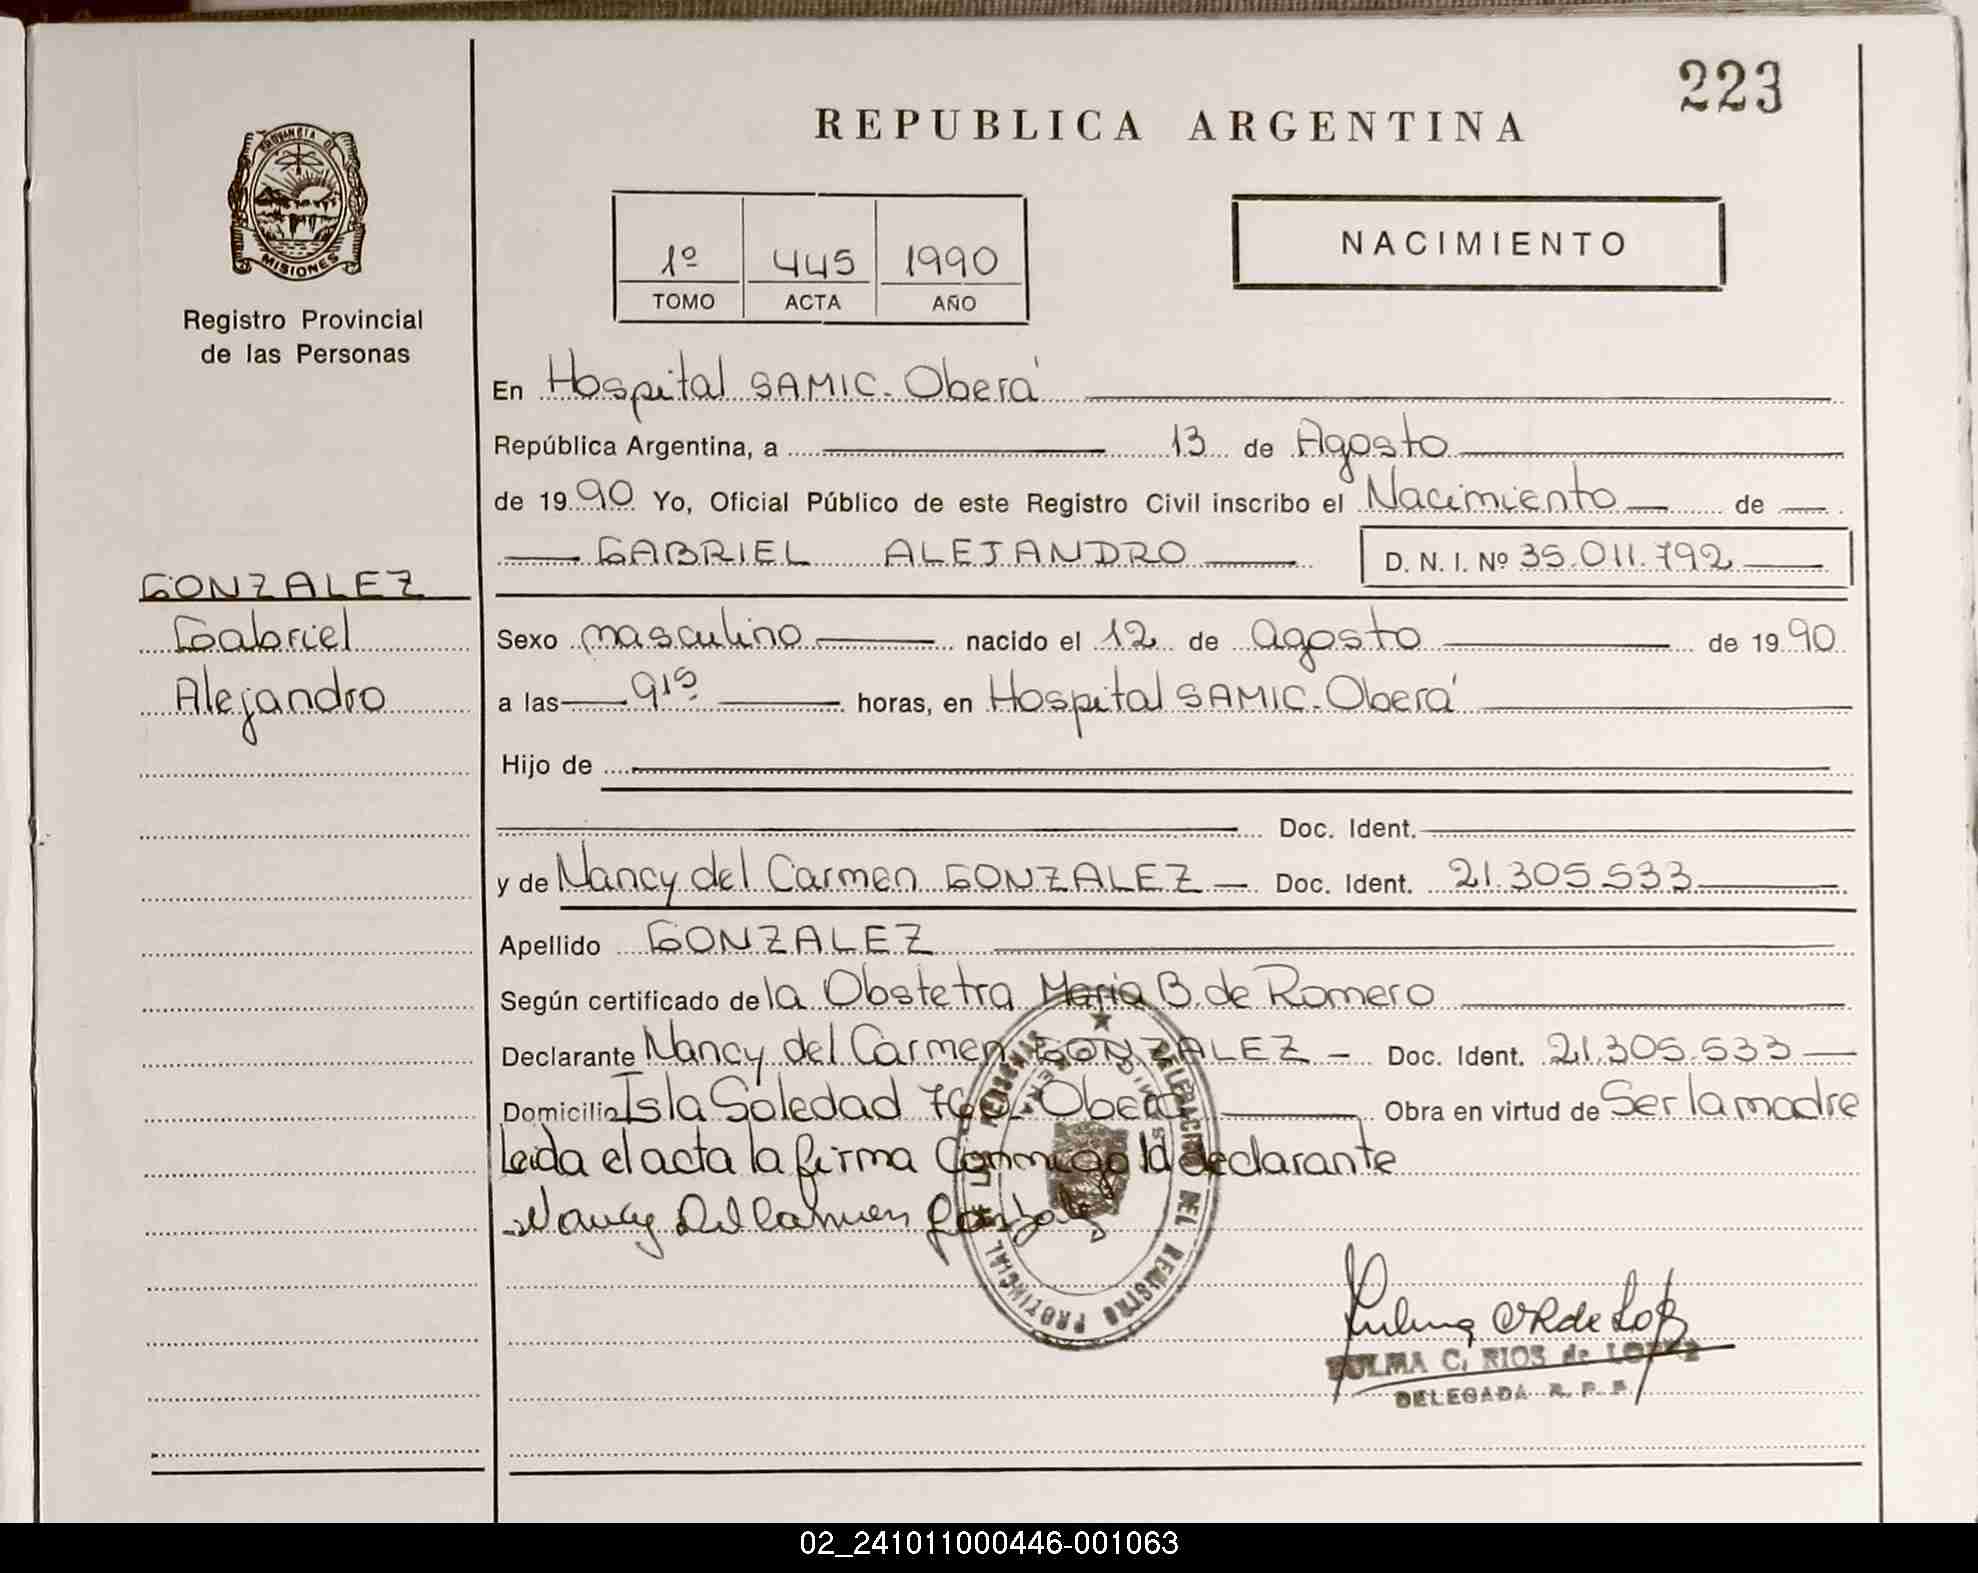 223
REPUBLICA ARGENTINA
PROVINCIA DE
MISIONES
Registro Provincial
de las Personas
1º 445 1990
TOMO ACTA AÑO
NACIMIENTO
En Hospital SAMIC. Oberá
República Argentina, a 13 de Agosto
de 1990 Yo, Oficial Público de este Registro Civil inscribo el Nacimiento de
GABRIEL ALEJANDRO D. N. I. Nº 35.011.792
GONZALEZ
Gabriel
Alejandro
Sexo masculino nacido el 12 de agosto de 1990
a las 9¹⁵ horas, en Hospital SAMIC. Oberá
Hijo de
Doc. Ident.
y de Nancy del Carmen GONZALEZ Doc. Ident. 21.305.533
Apellido GONZALEZ
Según certificado de la Obstetra Maria B. de Romero
Declarante Nancy del Carmen GONZALEZ Doc. Ident. 21.305.533
Domicilio Isla Soledad Oberá Obra en virtud de Ser la madre
Leida el acta la firma Conmigo la declarante
Nancy Del Carmen Gonzalez
DELEGACION DEL REGISTRO PROVINCIAL DE LAS PERSONAS
ZULMA C. RIOS de LOPEZ
DELEGADA R. P. P.
02_241011000446-001063